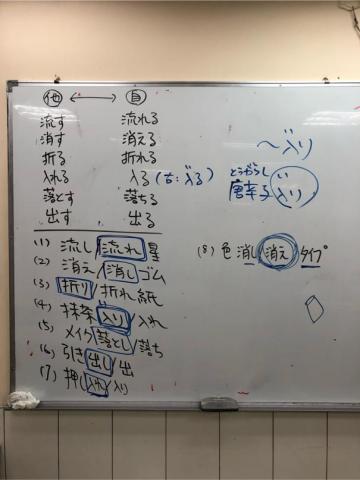 他 ↔ 自
流す 流れる
消す 消える
折る 折れる
入れる 入る (古:入る)
落とす 落ちる
出す 出る
(1) 流し/流れ星
(2) 消え/消しゴム
(3) 折り/折れ紙
(4) 抹茶入り/入れ
(5) メイク落とし/落ち
(6) 引き出し/出
(7) 押し入れ/入り
〜入り
とうがらし
唐辛子入り
(8) 色消し/消えタイプ